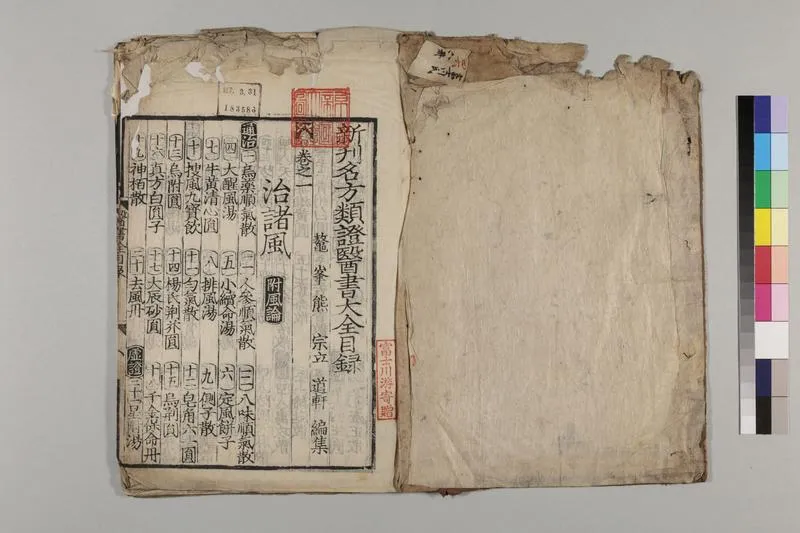 新刊名方類證醫書大全目録
鼇峯熊 宗立 道軒 編集
卷之一
治諸風 附風論
通治 一 烏藥順氣散 二 人參順氣散 三 八味順氣散
四 大醒風湯 五 小續命湯 六 定風餅子
七 牛黃清心圓 八 排風湯 九 側子散
十 搜風九寳飲 十一 勻氣散 十二 皂角六一圓
十三 烏附圓 十四 楊氏荆芥圓 十五 烏荆圓
十六 真方白圓子 十七 大辰砂圓 十八 保命丹
十九 神栢散 二十 去風丹 虛證 湯
醫書全目録
富士川游寄贈
183583